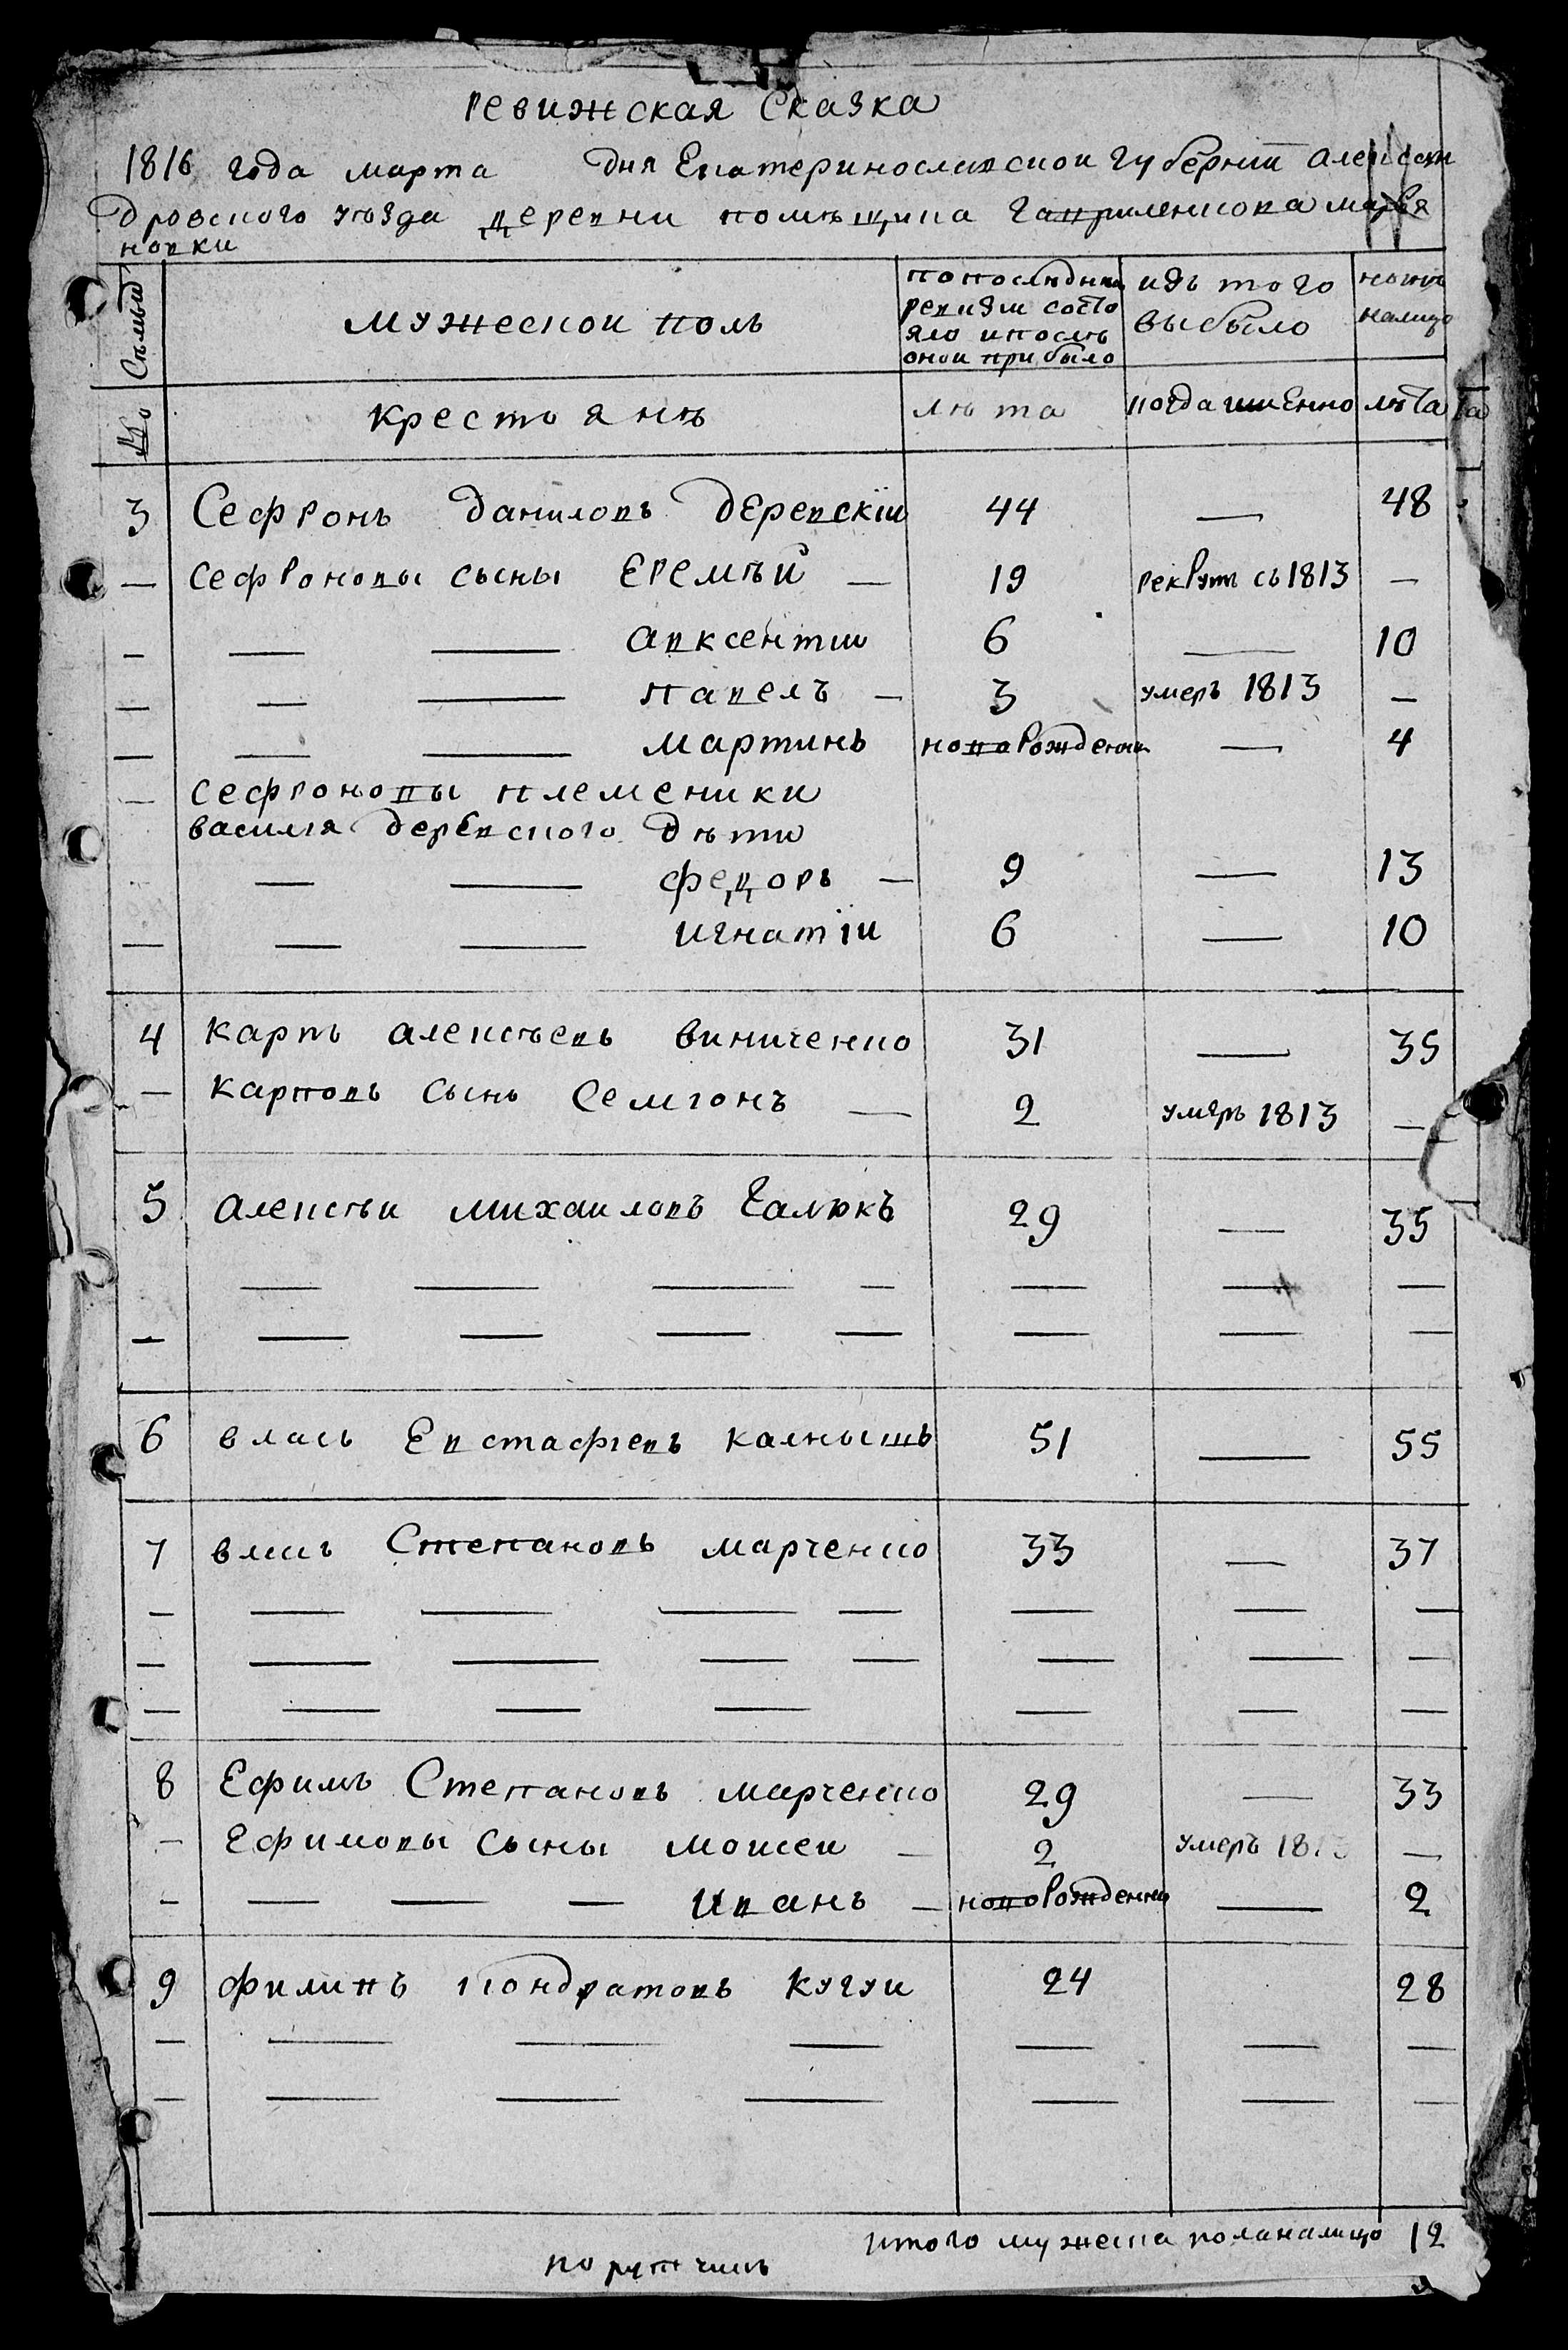 ревижская сказка
1816 года марта дня Екатеринославской губернии Алексан
дровского уѣзда деревни помѣщика Гавриленкова Марья
новки
мужеской полъ
по последней
ревизіи состо
яло и послѣ
оной прибыло
изъ того
выбыло
нынѣ
налицо
Семьи
№
крестоянѣ
лѣта
когда имЕнно
лѣта
3 Сефронъ Даниловъ Деревскіи 44 — 48
— сефроновы сыны Еремѣй — 19 рекрутъ съ 1813 —
— — — авксентіи 6 — 10
— — — павелъ — 3 умеръ 1813 —
— — — мартинъ новорожденны — 4
— сефроновы племеники
василія деревского дѣти
— — федоръ — 9 — 13
— — — игнатіи 6 — 10
4 карпъ алексѣевъ виниченко 31 — 35
— карповъ сынъ Семіонъ — 2 умеръ 1813 —
5 алексѣи михаиловъ Галюкъ 29 — 35
— — — — — — —
— — — — — — — —
6 власъ Евстафіевъ калнышъ 51 — 55
7 власъ Степановъ марченко 33 — 37
— — — — — — — —
— — — — — — — —
— — — — — — —
8 Ефимъ Степановъ марченко 29 — 33
— Ефимовы сыны моисеи — 2 умеръ 1813 —
— — — — иванъ — новорожденны — 2
9 филипъ кондратовъ кугуи 24 28
— — — — — — —
— — — — — —
итого мужеска пола налицо 12
поручикъ